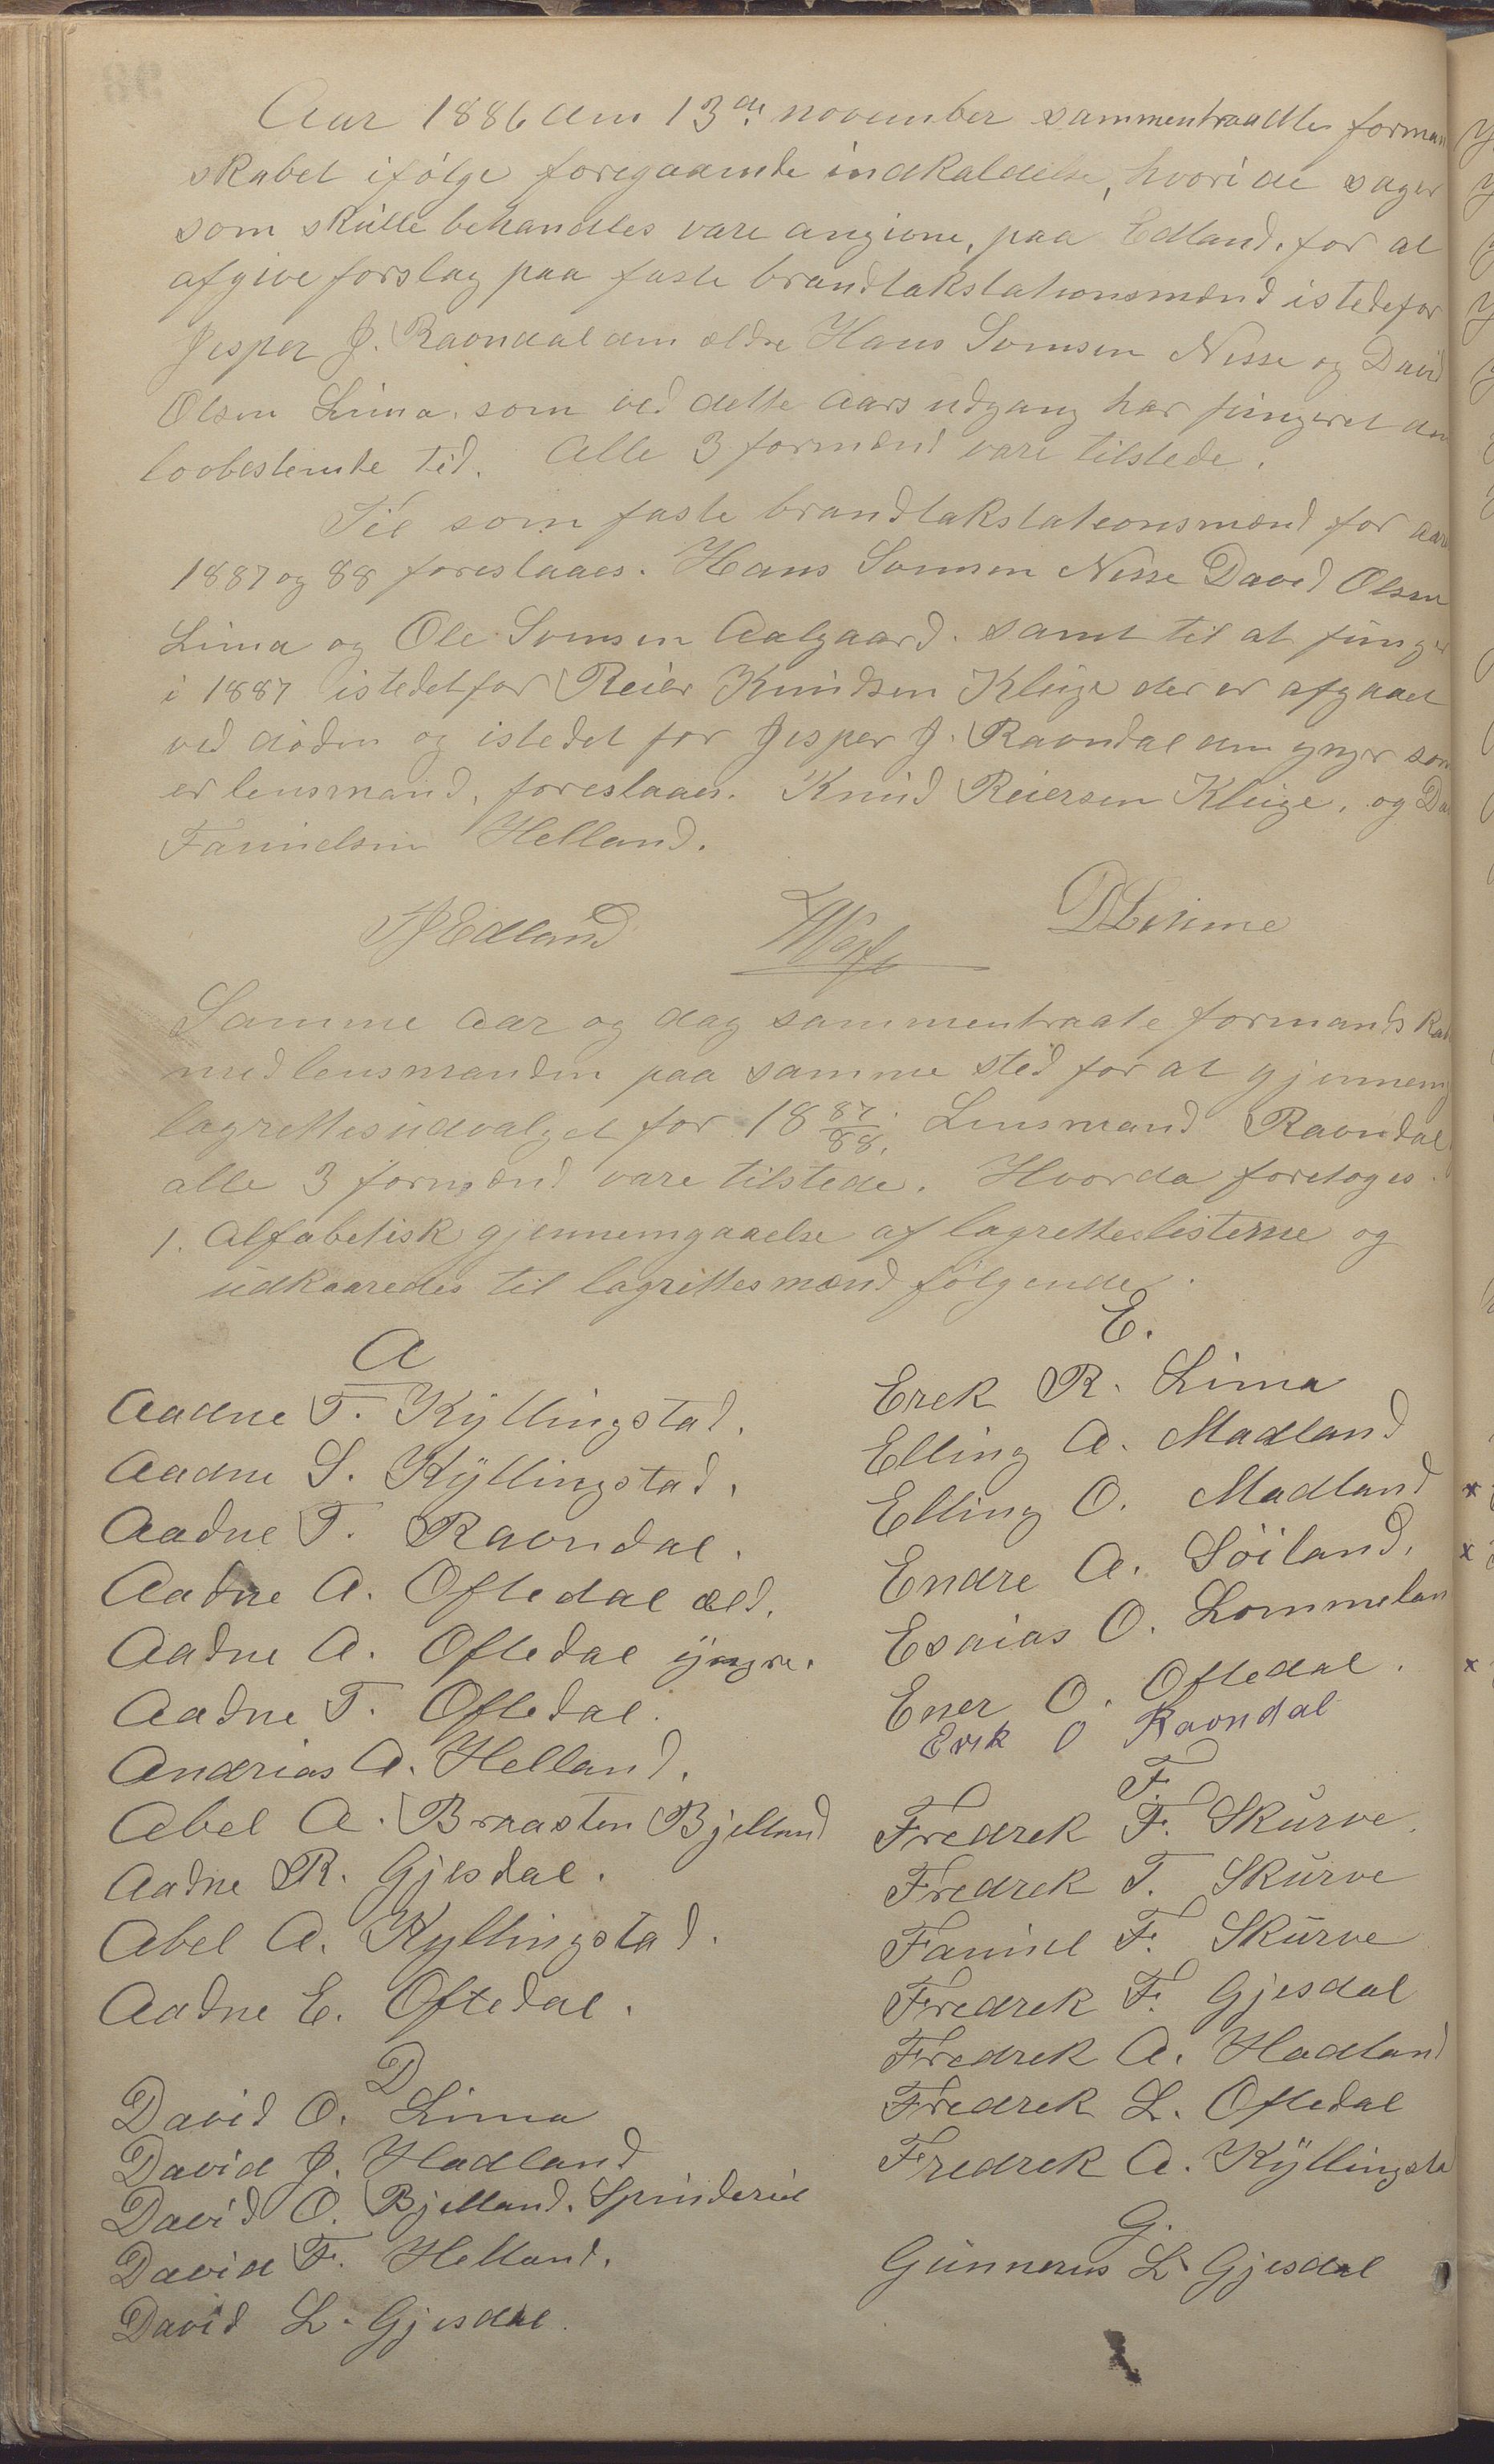 Aar 1886 den 13de november sammentraadte forman
skabet ifølge foregaaende indkaldelse, hvori de sager
som skulle behandles vare angivne, paa Edland, for at
afgive forslag paa faste brandtakstationsmænd istedefor
Jesper J. Ravndal den ældre Hans Svensen Nesse og David
Olsen Lima, som ved dette aars udgang har fungeret den
lovbestemte tid. Alle 3 formænd vare tilstede.
Til som faste brandtakstationsmænd for aar
1887 og 88 foreslaaes. Hans Svensen Nesse David Olsen
Lima og Ole Svensen Aalgaard. samt til at funger
i 1887 istedetfor Reier Knudsen Kluge der er afgaaet
ved døden og istedet for Jesper J. Ravndal den yngr som
er lensmand, foreslaaes. Knud Reiersen Kluge, og Da
Faruielsen Helland.
Edland DLimme
Samme aar og dag sammentraate formandska
med lensmanden paa samme sted for at gjennem
lagrettesudvalget for 18 87/88. Lensmand Ravndal
alle 3 formænd vare tilstede. Hvorda foretoges.
1. Alfabetisk gjennemgaaelse af lagretteslisterne og
udkaaredes til lagrettesmænd følgende.
A
Aadne T. Kyllingstad.
Aadne S. Kyllingstad.
Aadne T. Ravndal.
Aadne A. Oftedal æld.
Aadne A. Oftedal yngre.
Aadne T. Oftedal.
Andrias A. Helland.
Abel A. Braasten Bjelland
Aadne R. Gjesdal.
Abel A. Kyllingstad.
Aadne E. Oftedal.
D
David O. Lima
David J. Hadland
David O. Bjelland. Spinderiet
David F. Helland.
David L. Gjesdal.
E.
Erek R. Lima
Elling A. Madland
Elling O. Madland
Endre A. Søiland.
Esaias O. Lommelan
Ener O. Oftedal.
Erik O Ravndal
F.
Fredrek F. Skurve.
Fredrek T. Skurve
Faruiel F. Skurve
Fredrek F. Gjesdal
Fredrek A. Hadland
Fredrek L. Oftedal
Fredrek A. Kyllingsta
G.
Gunnerus L. Gjesdal